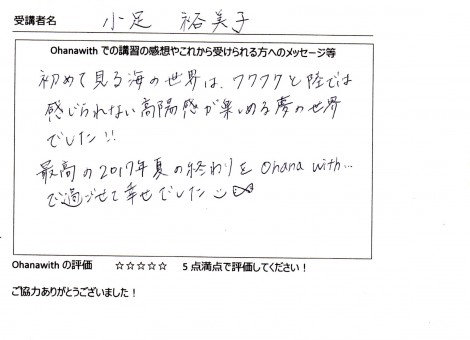 受講者名 小足 裕美子
Ohanawith での講習の感想やこれから受けられる方へのメッセージ等
初めて見る海の世界は、ワクワクと陸では
感じられない高陽感が楽しめる夢の世界
でした!!
最高の2017年夏の終わりを Ohana with…
で過ごせて幸せでした
Ohanawith の評価 ☆☆☆☆☆ 5 点満点で評価してください！
ご協力ありがとうございました！